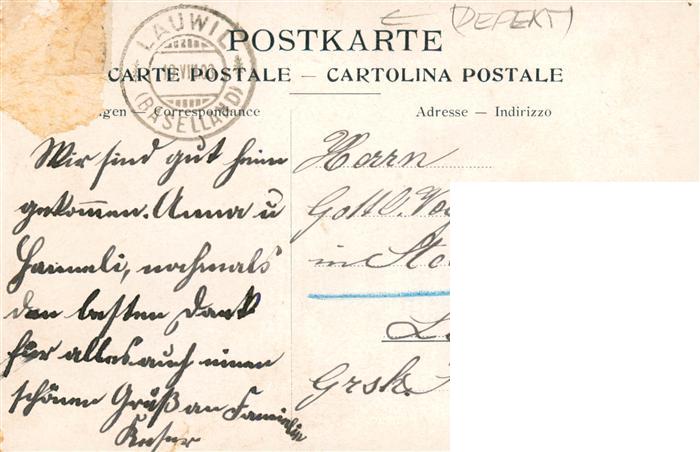 (DEFEKT)
LAUWIL
(BASELLAND)
POSTKARTE
CARTE POSTALE — CARTOLINA POSTALE
Correspondance
Adresse — Indirizzo
Wir sind gut heim
gekommen. Anna u
Hanneli, nochmals
den besten Dank
für alles auch einen
schönen Grüß an Familie
Herrn
Gottl.
in
Grsk.